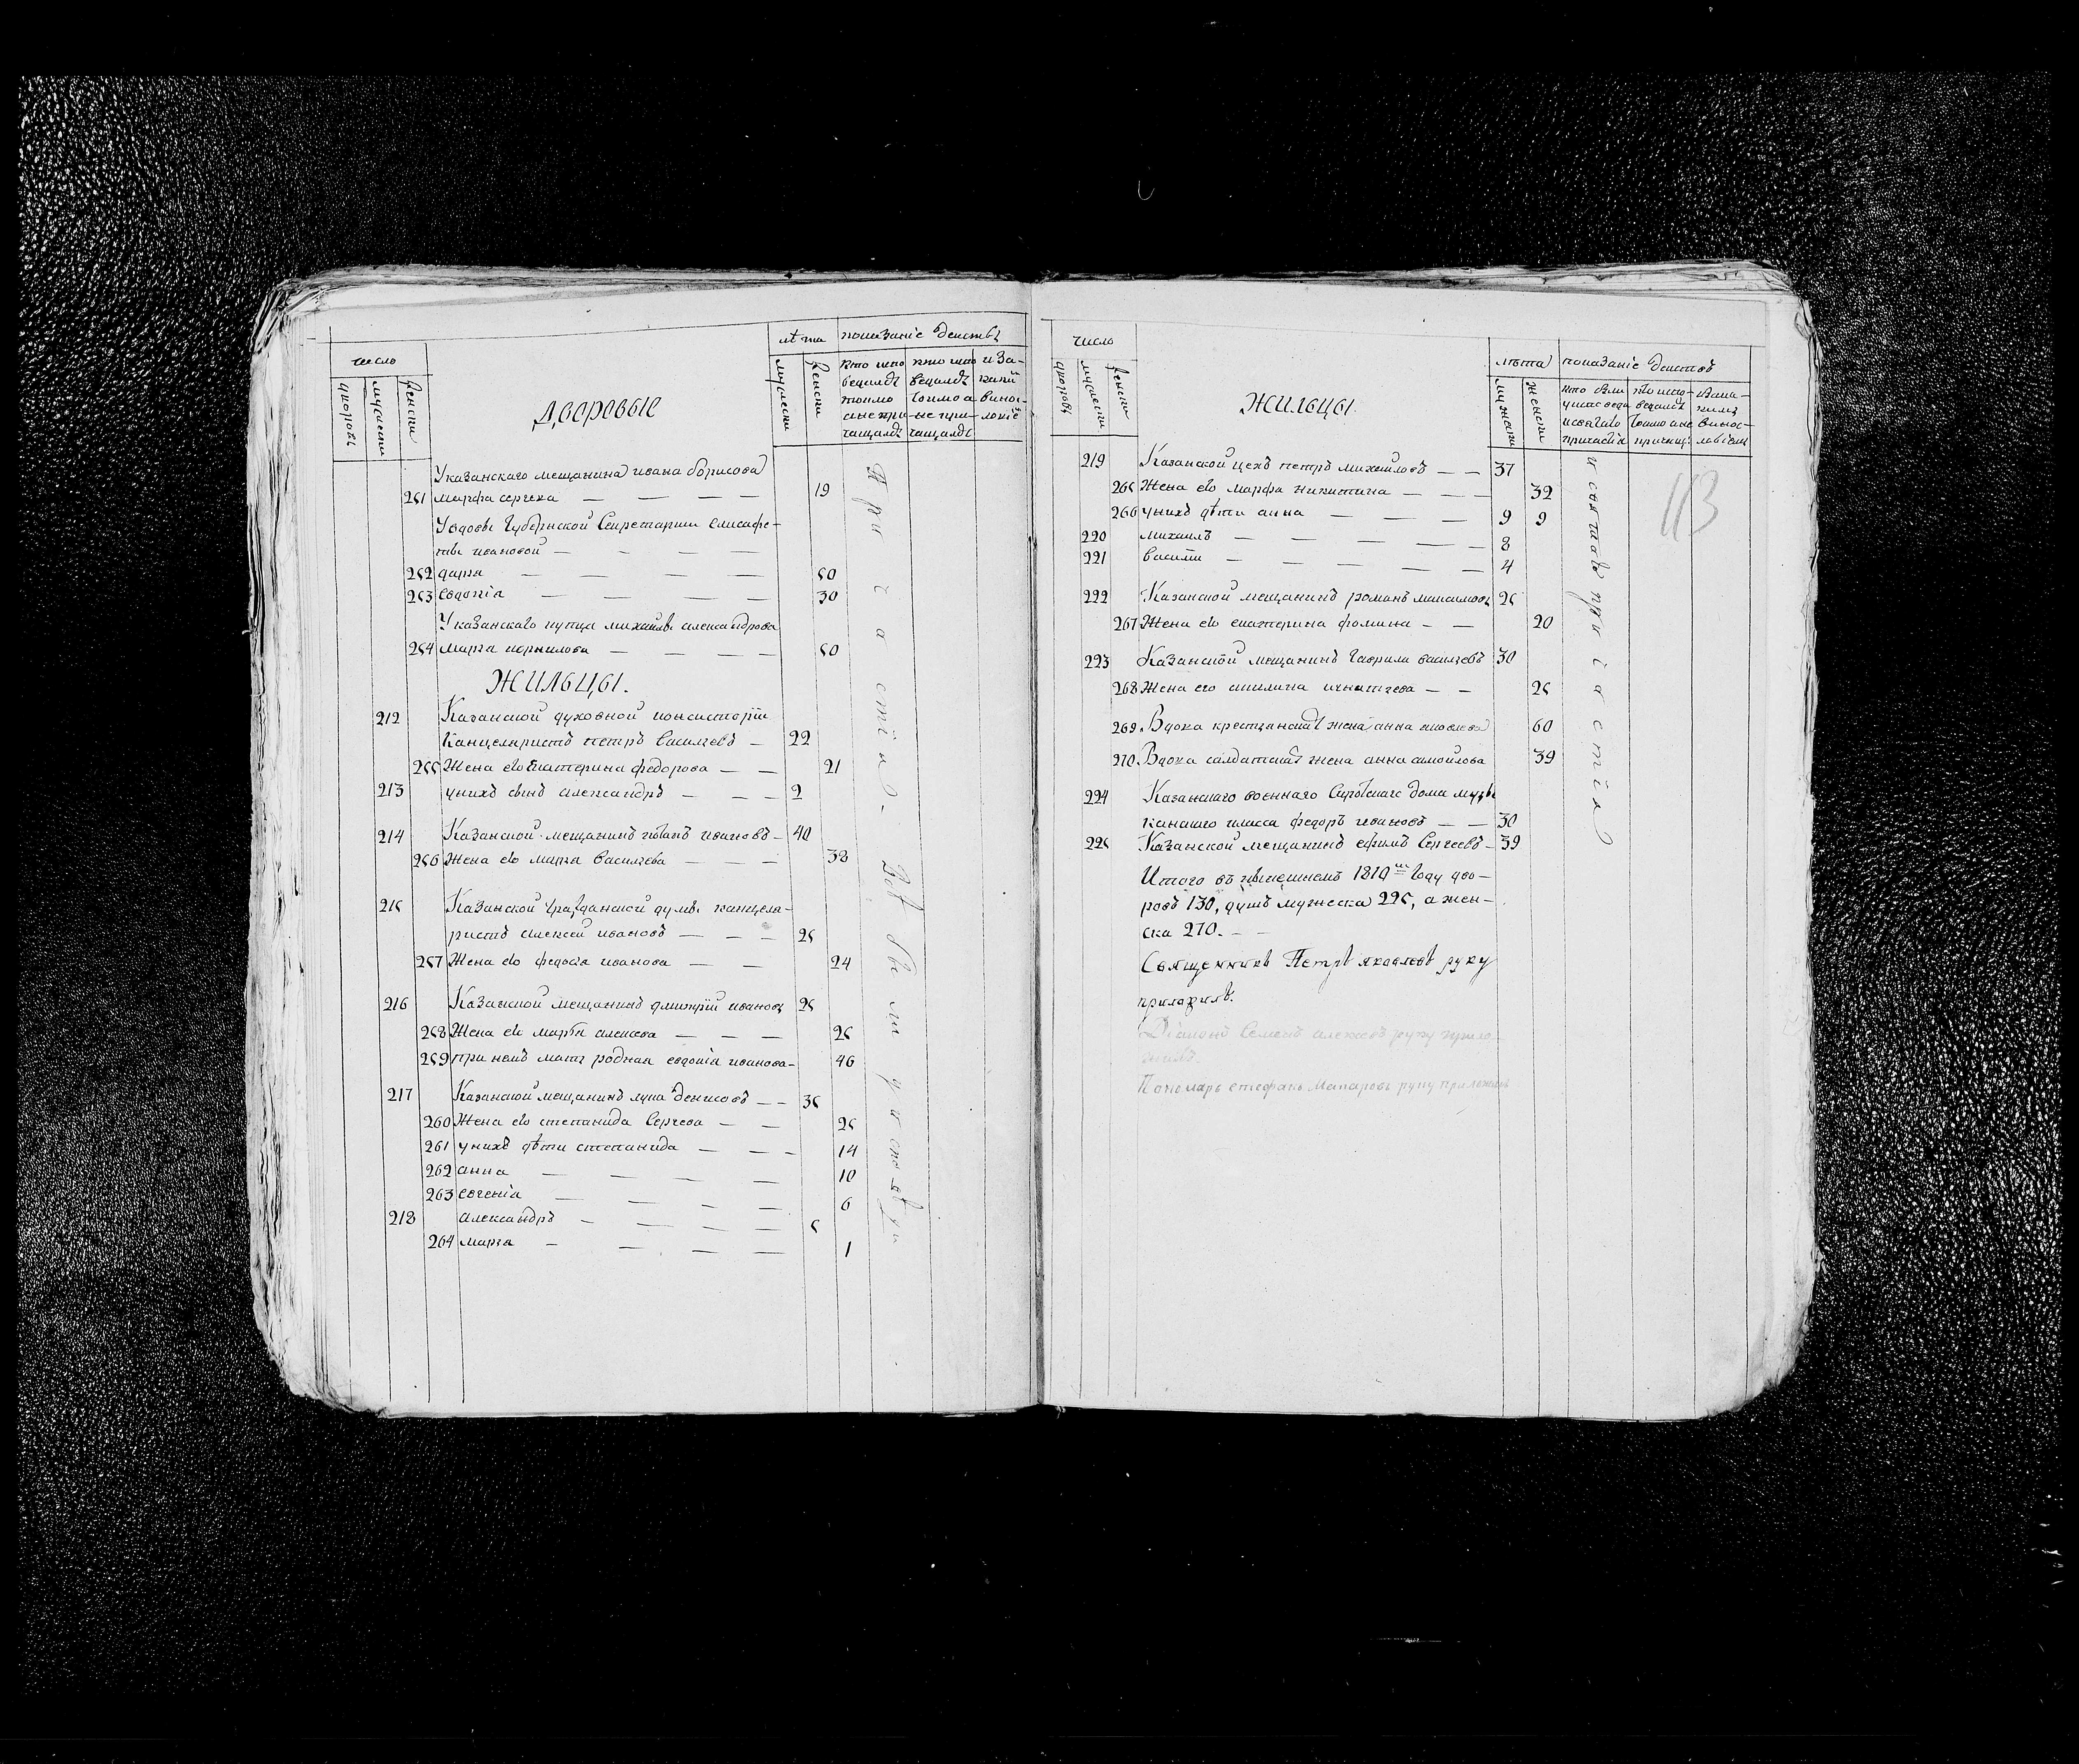 число
дворовъ
мужески
женски
Дворовые
лѣта
мужески
женски
показаніе действъ
кто испо
ведался
токмо
а не при
чащался
кто испо
ведался
токмо а
не при-
чащался
и за-
какий
винос-
ловіе
Указанскаго мещанина ивана борисова
251 марфа сергеева — — — — 19
Увдовы Губернской Секретарши елисафе-
ты ивановой — - — —
252 дарья — — — — 50
253 евдокія — — — — 30
Указанскаго купца михайлы александрова
254 марья корнилова — — — — 50
ЖИЛЬЦЫ.
212 Казанской духовной консисторіи
Канцеляристъ петръ Васильевъ — 22
255 Жена его Екатерина федорова — — 21
213 унихъ сынъ александръ — — — 2
214 Казанской мещанинъ иванъ ивановъ — 40
256 Жена его марья Васильева — — — 38
215 Казанской гражданской думы канцеля-
ристъ алексей ивановъ — — — 25
257 Жена его федосья иванова — — 24
216 Казанской мещанинъ дмитрій ивановъ 25
258 Жена ево марья алексеева — — — 25
259 при немъ мать родная евдокія иванова — 46
217 Казанской мещанинъ лука Денисовъ — — 35
260 Жена его степанида Сергеева — — 25
261 унихъ дѣти степанида — — - 14
262 анна — — — — 10
263 евгенія — — - — 6
218 александръ - — — — 5
264 марья - — — — 1
При частія. Всѣ были уисповѣди
число
дворовъ
мужески
женски
ЖИЛЬЦЫ.
лѣта
мужски
женски
показаніе действъ
кто были
уисповеди
исвятаго
причастія
кто испо-
ведался
токмо а не
причащ:
Зака-
кимъ
винос-
ловіемъ
113
219 Казанской цехъ петръ михайловъ — — 37
265 Жена его марфа никитина — — — 32
266 унихъ дѣти анна — — — 9 9
220 михаилъ — — — — — 8
221 василій — - — — — 4
222 Казанской мещанинъ романъ максимовъ 25
267 Жена его екатерина фомина - — 20
223 Казанской мещанинъ Гаврила васильевъ 30
268 Жена его акилина игнатьева — - 25
269. Вдова крестьянская жена анна яковлева 60
270. Вдова салдатская жена анна самойлова 39
224 Казанскаго военнаго Сиротскаго дома музы
канскаго класса федоръ ивановъ — — 30
225 Казанской мещанинъ ефимъ Сергеевъ — 39
Итого въ нынешнемъ 1810м году дво-
ровъ 130, душъ мужеска 225, а жен-
ска 270. - -
Священникъ Петръ яковлевъ руку
приложилъ.
Діаконъ Семенъ алексеевъ руку прило-
жилъ.
Пономарь стефанъ Макаровъ руку приложилъ
и святаго при частія